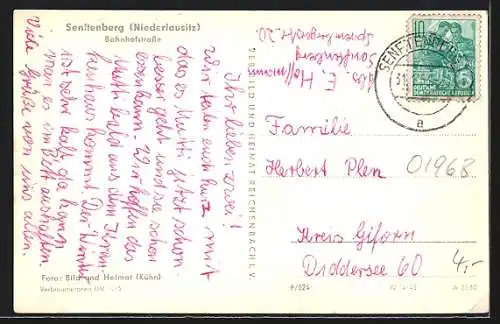 Senftenberg (Niederlausitz)
Bahnhofstraße
Ihr lieben zwei!
Wir teilen euch kurz mit
das es Mutti jetzt schon
besser geht und sie schon
essen kann. Wir hoffen das
Mutti bald aus dem Kran
kenhaus kommt. Der Winter
ist sehr kalt, da kann
man es im Bett aushalten.
Viele Grüße von uns allen.
Foto: Bild und Heimat (Kühn)
VERLAG BILD UND HEIMAT REICHENBACH I. V.
Abs. E. Hoffmann
Senftenberg
Spremberger Str. 20
SENFTENBERG
a
10
DEUTSCHE
DEMOKRATISCHE REPUBLIK
5
Familie
Herbert Plen
01968
Kreis Giforn
Diddersee 60
4,-